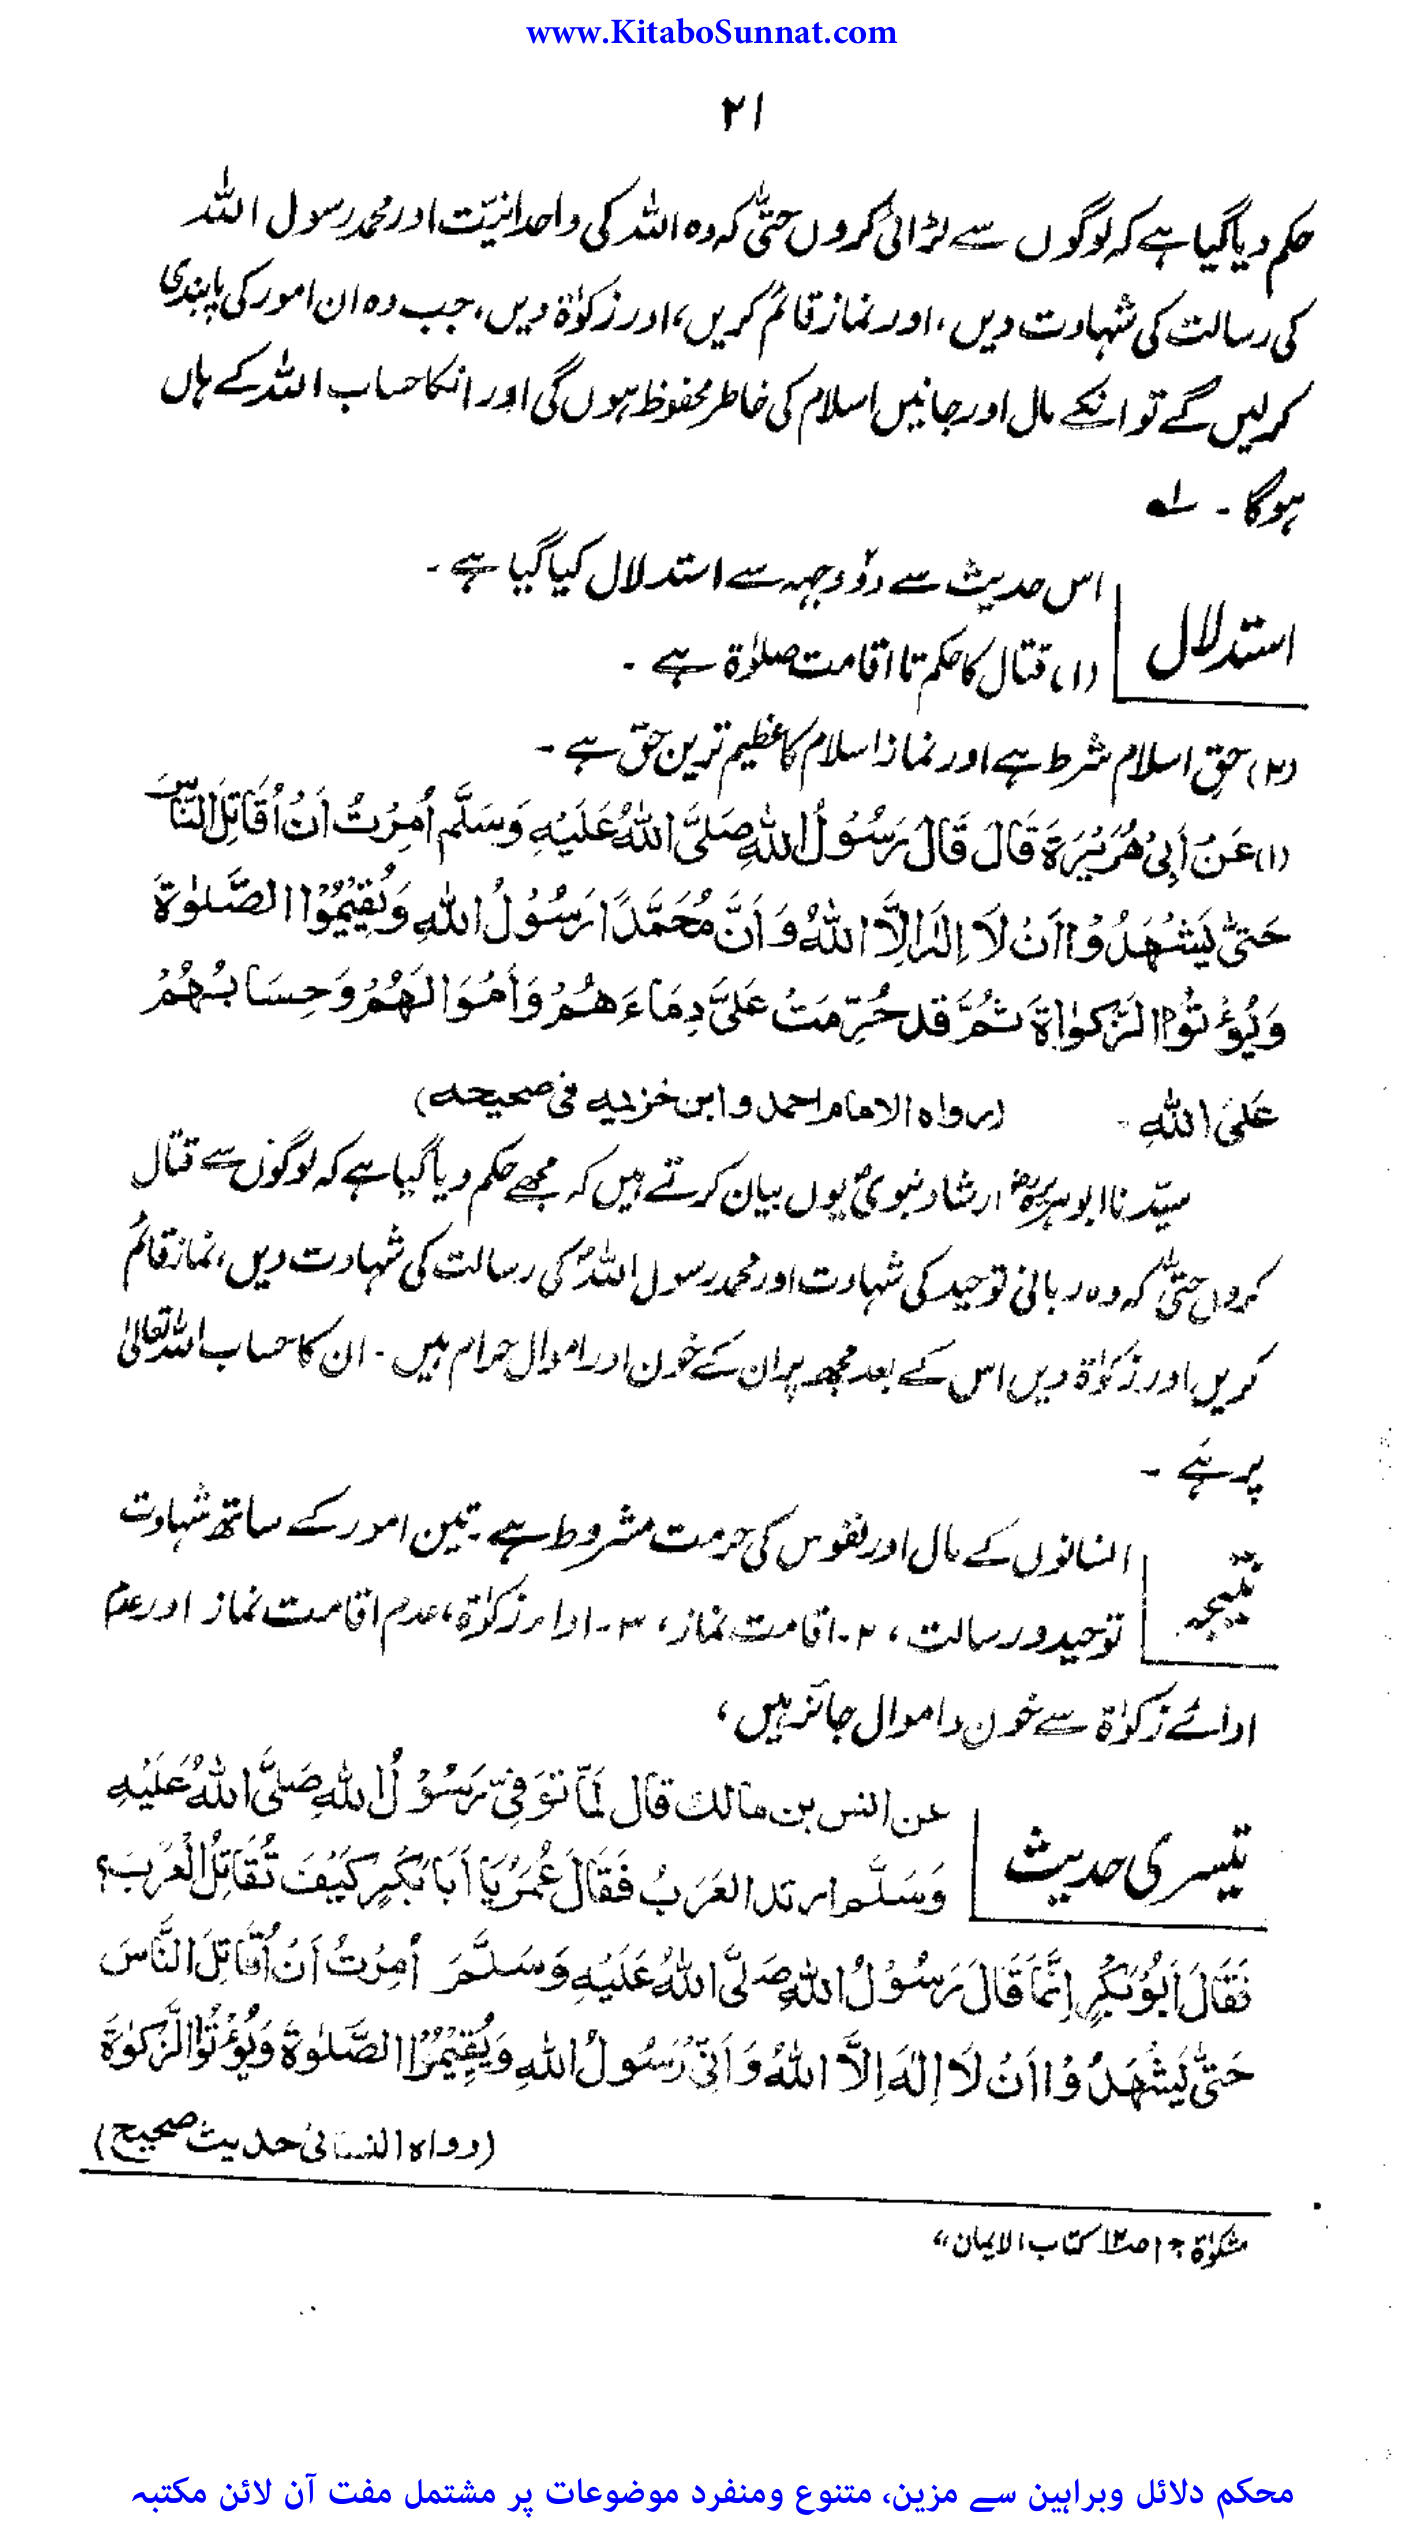 www.KitaboSunnat.com
۲۱
حکم دیا گیا ہے کہ لوگوں سے لڑائی کروں حتیّٰ کہ وہ اللہ کی واحدانیّت اور محمد رسول اللہ
کی رسالت کی شہادت دیں، اور نماز قائم کریں، اور زکوٰۃ دیں، جب وہ ان امور کی پابندی
کرلیں گے تو انکے مال اور جانیں اسلام کی خاطر محفوظ ہوں گی اور انکا حساب اللہ کے ہاں
ہوگا ۔ لہ
استدلال
اس حدیث سے دو وجہہ سے استدلال کیا گیا ہے ۔
(۱) قتال کا حکم تا اقامت صلوٰۃ ہے ۔
(۲) حقِ اسلام شرط ہے اور نماز اسلام کا عظیم ترین حقّ ہے ۔
(۱) عَنْ أَبِیْ هُرَیْرَةَ قَالَ قَالَ رَسُوْلُ اللهِ صَلَّی اللهُ عَلَیْهِ وَسَلَّم اُمِرْتُ اَنْ اُقَاتِلَ النَّاسَ
حَتیّٰ یَشْهَدُوْا اَنْ لَا اِلٰهَ اِلَّا اللهُ وَ اَنَّ مُحَمَّدًا رَسُوْلُ اللهِ وَیُقِیْمُوْا الصَّلوٰةَ
وَیُؤْتُوْا الزَّکوٰاةَ ثُمَّ قد حُرِّمَتْ عَلَیَّ دِمَاءَ هُمْ وَ اَمْوَالَهُمْ وَحِسَابُهُمْ
عَلیَ اللهِ ۔ (رواه الامام احمد وابن خزیمه فی صحیحه)
سیّدنا ابوہریرہؓ ارشاد نبویؐ یوں بیان کرتے ہیں کہ مجھے حکم دیا گیا ہے کہ لوگوں سے قتال
کروں حتیّٰ کہ وہ ربانی توحید کی شہادت اور محمد رسول اللہؐ کی رسالت کی شہادت دیں، نماز قائم
کریں اور زکوٰۃ دیں اس کے بعد مجھ پر ان کے خون اور اموال حرام ہیں ۔ ان کا حساب اللہ تعالیٰ
پر ہے ۔
نتیجہ
انسانوں کے مال اور نفوس کی حرمت مشروط ہے ۔ تین امور کے ساتھ شہادت
توحید و رسالت، ۲۔ اقامت نماز، ۳۔ اداء زکوٰۃ، عدم اقامت نماز اور عدم
ادائے زکوٰۃ سے خون و اموال جائز ہیں،
تیسری حدیث
عن انس بن مالك قال لَمَّا تُوَفِیّ رَسُوْلُ اللهِ صَلَّی اللهُ عَلَیْهِ
وَسَلَّم ارتد العَرَبُ فَقَالَ عُمَرُ یَا اَبَا بَکْرٍ کَیْفَ تُقَاتِلُ الْعَرَبَ؟
فَقَالَ اَبُوْبَکْرٍ اِنَّمَا قَالَ رَسُوْلُ اللهِ صَلَّی اللهُ عَلَیْهِ وَسَلَّمَ اُمِرْتُ اَنْ اُقَاتِلَ النَّاسَ
حَتّٰی یَشْهَدُوْا اَنْ لَا اِلٰهَ اِلَّا اللهُ وَ اَنِّیْ رَسُوْلُ اللهِ وَیُقِیْمُوْا الصَّلوٰةَ وَیُؤْتُوْا الزَّکوٰةَ
(رواه النسائی حدیث صحیح)
مشکوٰۃ ج۱ ص۱۲ کتاب الایمان،،
محکم دلائل وبراہین سے مزین، متنوع ومنفرد موضوعات پر مشتمل مفت آن لائن مکتبہ